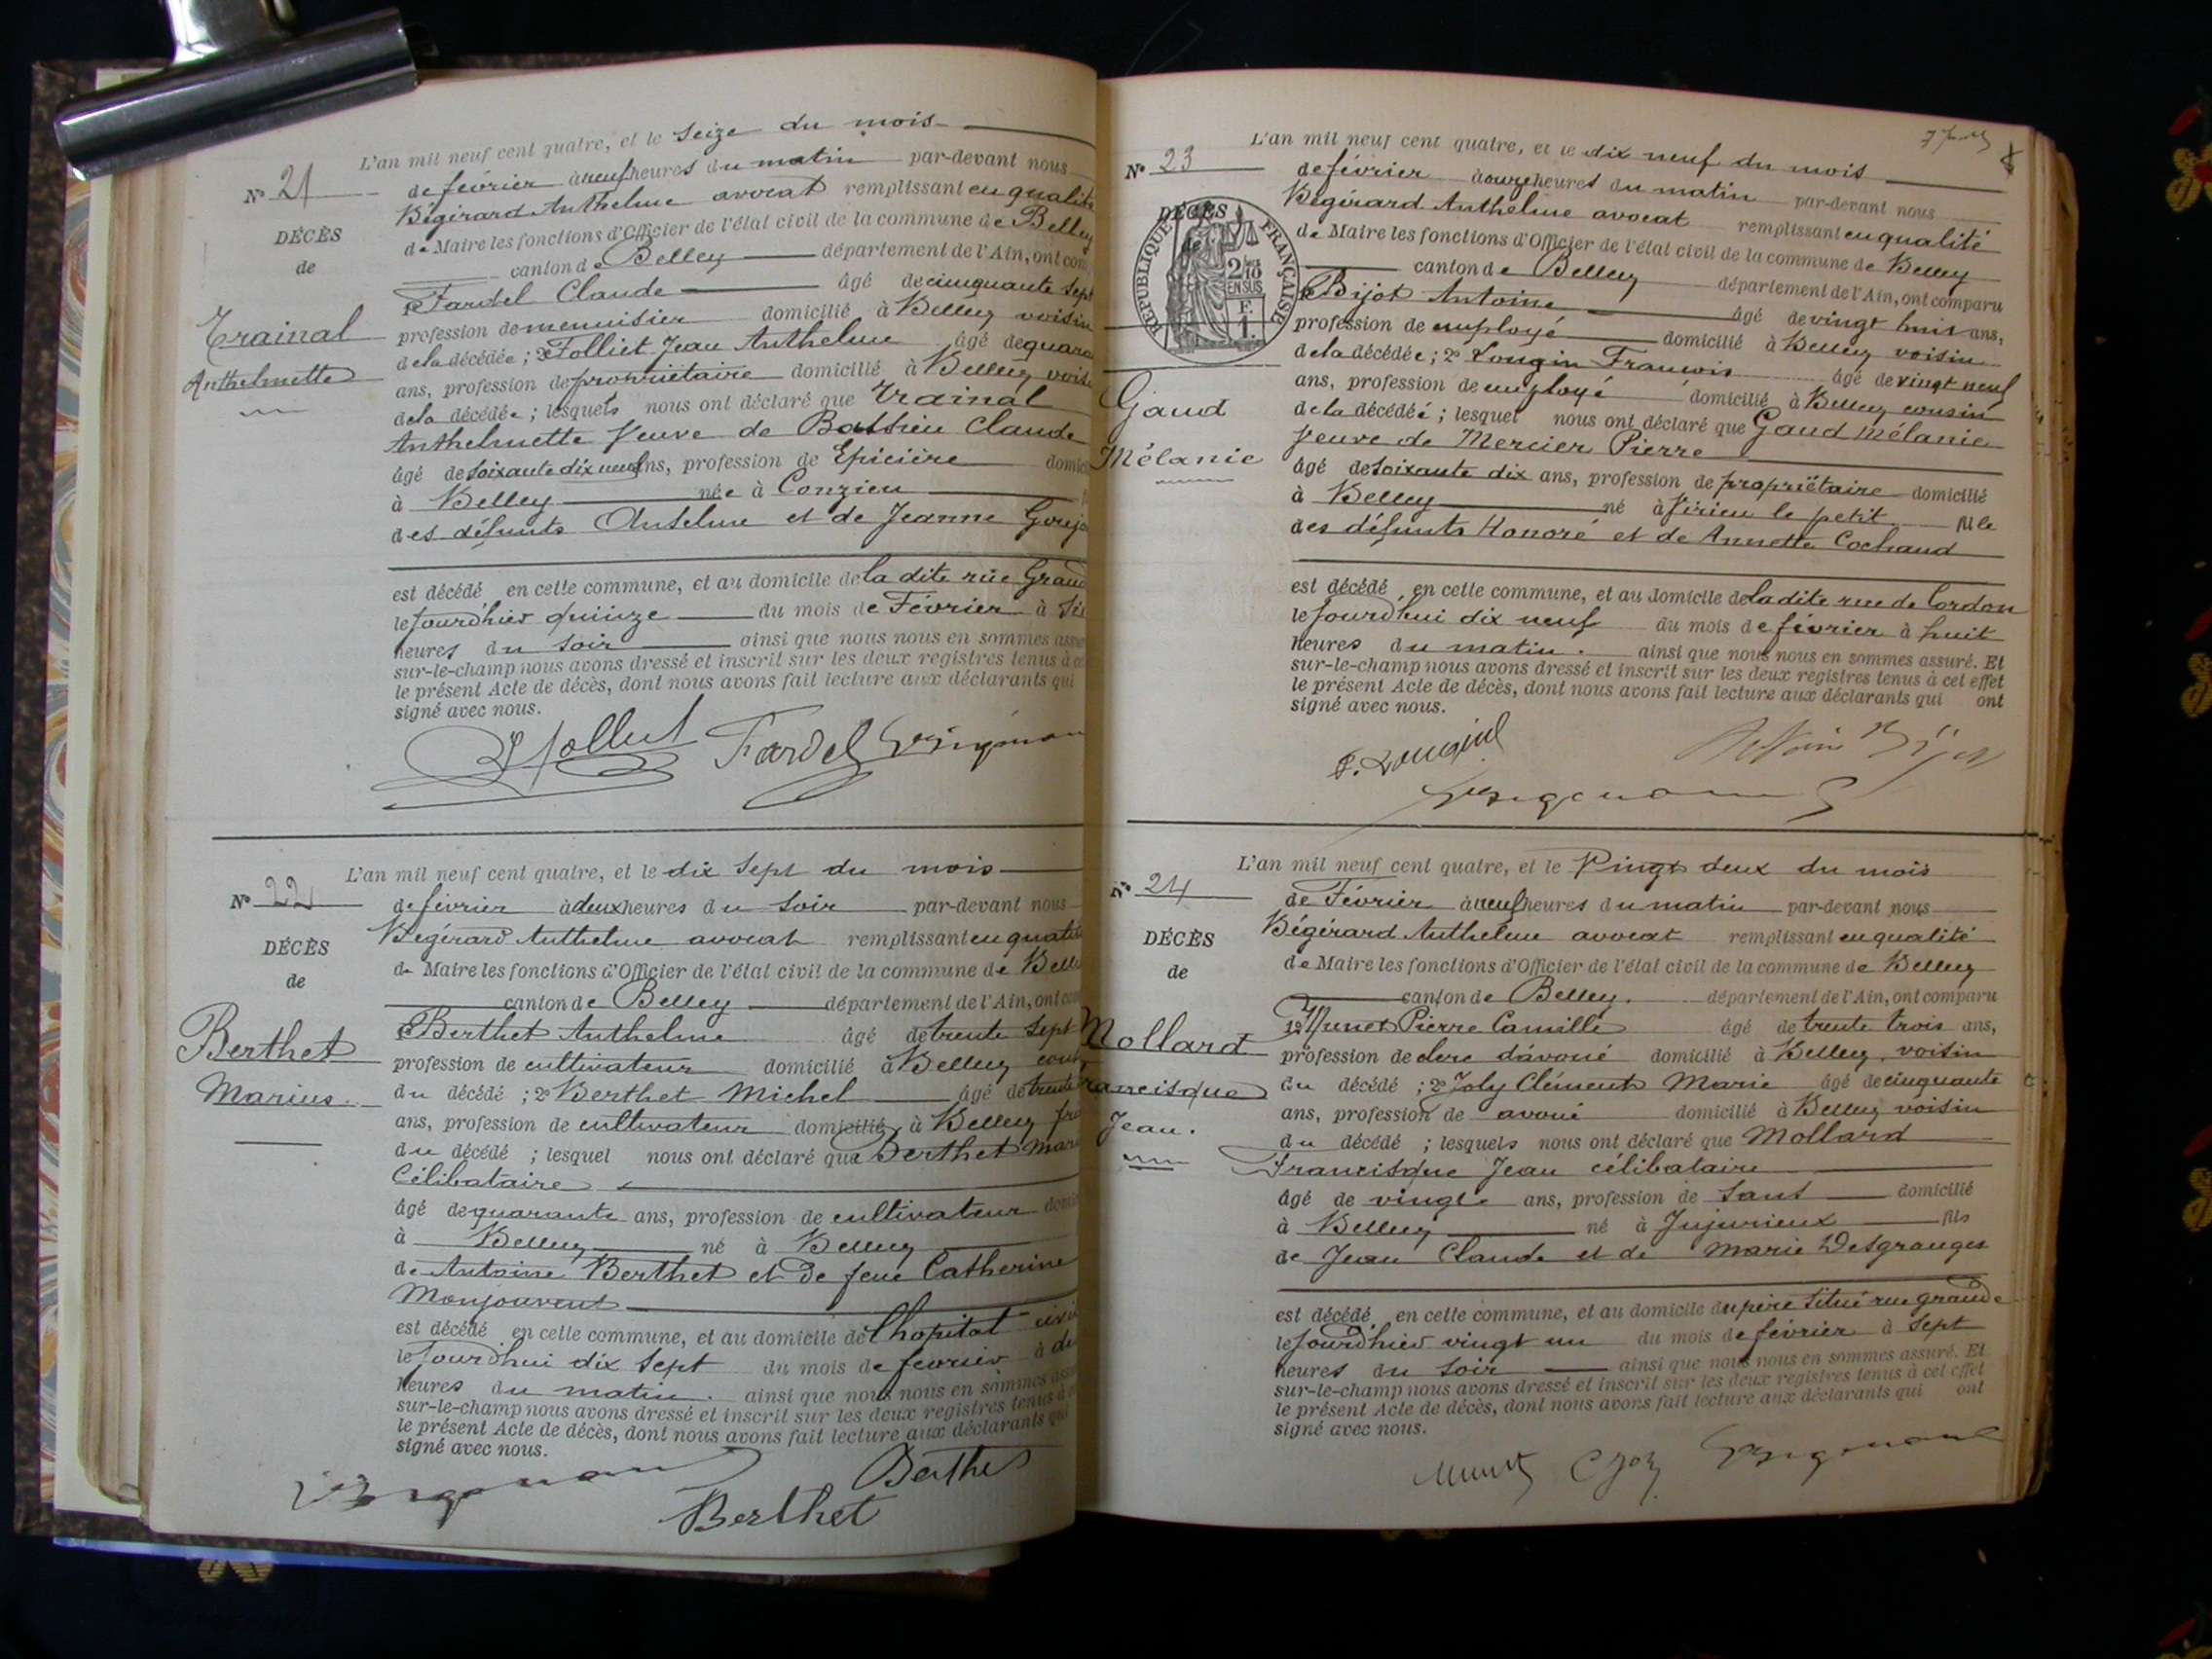 L'an mil neuf cent quatre, et le seize du mois
N° 21
de février à neuf heures du matin par-devant nous
Bégérard Anthelme avocat remplissant en qualité
DÉCÈS
de Maire les fonctions d'Officier de l'état civil de la commune de Belley
de
canton de Belley département de l'Ain, ont com
1° Fardel Claude âgé de cinquante sept
Trainal
profession de menuisier domicilié à Belley voisin
de la décédée ; 2° Folliet Jean Anthelme âgé de quara
Anthelmette
ans, profession de propriétaire domicilié à Belley voisi
de la décédée ; lesquels nous ont déclaré que Trainal
Anthelmette Veuve de Claude
âgé de soixante dix neuf ans, profession de Epicière domici
à Belley née à Conzieu
des défunts Anselme et de Jeanne Gouja
est décédé en cette commune, et au domicile de la dite rue Grand
le jourd'hier quinze du mois de Février à
heures du soir ainsi que nous nous en sommes assu
sur-le-champ nous avons dressé et inscrit sur les deux registres tenus à ce
le présent Acte de décès, dont nous avons fait lecture aux déclarants qui
signé avec nous.
Fardel
L'an mil neuf cent quatre, et le dix sept du mois
N° 22
de février à deux heures du soir par-devant nous
Bégérard Anthelme avocat remplissant en qualité
DÉCÈS
de Maire les fonctions d'Officier de l'état civil de la commune de Belle
de
canton de Belley département de l'Ain, ont com
1° Berthet Anthelme âgé de trente sept
Berthet
profession de cultivateur domicilié à Belley cous
Marius.
du décédé ; 2° Berthet Michel âgé de trente
ans, profession de cultivateur domicilié à Belley frè
du décédé ; lesquel nous ont déclaré que Berthet Mari
Célibataire
âgé de quarante ans, profession de cultivateur domi
à Belley né à Belley
de Antoine Berthet et de feue Catherine
Monjouvent
est décédé en cette commune, et au domicile de l'hopital civil
le jourd'hui dix sept du mois de février à
heures du matin. ainsi que nous nous en sommes assu
sur-le-champ nous avons dressé et inscrit sur les deux registres tenus à c
le présent Acte de décès, dont nous avons fait lecture aux déclarants qui
signé avec nous.
Berthet
Berthet
L'an mil neuf cent quatre, et le dix neuf du mois
N° 23
de février à onze heures du matin par-devant nous
Bégérard Anthelme avocat remplissant en qualité
DÉCÈS
de
RÉPUBLIQUE FRANÇAISE
2/10 EN SUS
F. 1.
de Maire les fonctions d'Officier de l'état civil de la commune de Belley
canton de Belley département de l'Ain, ont comparu
1° Bijot Antoine âgé de vingt huit ans,
profession de employé domicilié à Belley voisin
de la décédée ; 2° Longin Francois âgé de vingt neuf
Gaud
ans, profession de employé domicilié à Belley cousin
de la décédée ; lesquel nous ont déclaré que Gaud Mélanie
Veuve de Mercier Pierre
Mélanie
âgé de soixante dix ans, profession de propriétaire domicilié
à Belley né à Virieu le petit fille
des défunts Honoré et de Annette Cochaud
est décédé en cette commune, et au domicile de la dite rue de Cordon
le jourd'hui dix neuf du mois de février à huit
heures du matin. ainsi que nous nous en sommes assuré. Et
sur-le-champ nous avons dressé et inscrit sur les deux registres tenus à cet effet
le présent Acte de décès, dont nous avons fait lecture aux déclarants qui ont
signé avec nous.
L'an mil neuf cent quatre, et le Vingt deux du mois
N° 24
de Février à neuf heures du matin par-devant nous
Bégérard Anthelme avocat remplissant en qualité
DÉCÈS
de Maire les fonctions d'Officier de l'état civil de la commune de Belley
de
canton de Belley. département de l'Ain, ont comparu
1° Munet Pierre Camille âgé de trente trois ans,
Mollard
profession de clerc d'avoué domicilié à Belley, voisin
rancisque
du décédé ; 2° Joly Clément Marie âgé de cinquante
ans, profession de avoué domicilié à Belley voisin
Jean.
du décédé ; lesquels nous ont déclaré que Mollard
Francisque Jean célibataire
âgé de vingt ans, profession de sans domicilié
à Belley né à Jujurieux fils
de Jean Claude et de Marie Desgranges
est décédé en cette commune, et au domicile du père situé rue grande
le jourd'hier vingt un du mois de février à sept
heures du soir ainsi que nous nous en sommes assuré. Et
sur-le-champ nous avons dressé et inscrit sur les deux registres tenus à cet effet
le présent Acte de décès, dont nous avons fait lecture aux déclarants qui ont
signé avec nous.